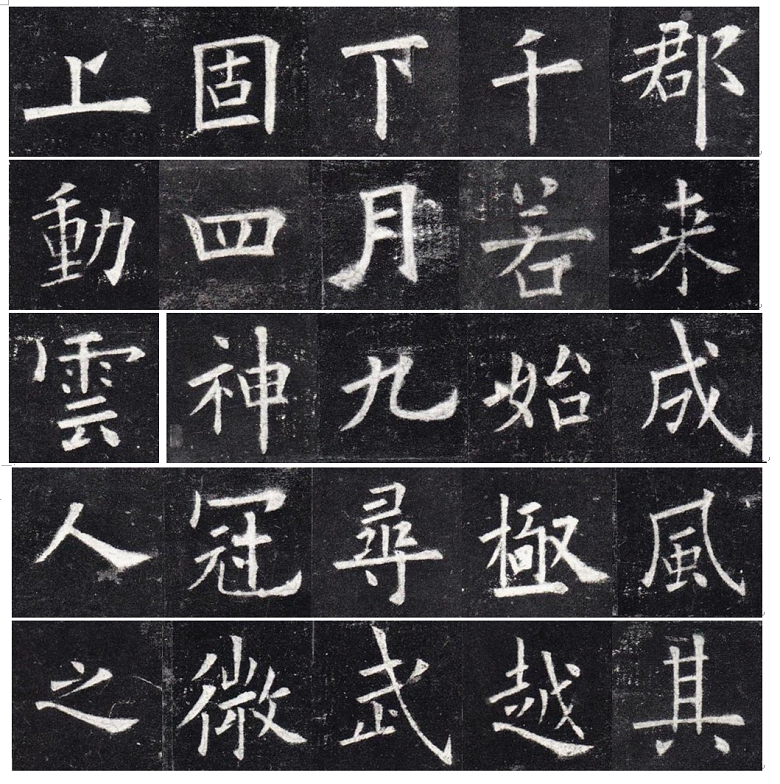 上固下千郡
動四月若来
雲神九始成
人冠尋極風
之微武越其